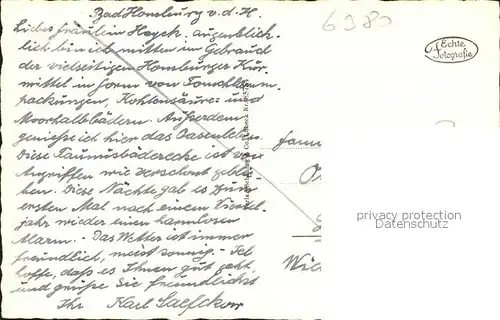 Bad Homburg v. d. H.
6980
Liebes Fräulein Heyck, augenblick-
lich bin ich mitten im Gebrauch
der vielseitigen Homburger Kur-
mittel in form von
packungen, Kohlensäure- und
Moorhalbbädern. Außerdem
genieße ich hier das Oasenleben.
Diese Taunusbäderecke ist von
Angriffen wie verschont geblie-
ben. Diese Nächte gab es zum
ersten Mal nach einem Viertel-
jahr wieder einen harmlosen
Alarm. - Das Wetter ist immer
freundlich, meist sonnig. - Ich
hoffe, daß es Ihnen gut geht,
und grüße Sie freundlichst
Ihr Karl
Echte
Fotografie
privacy protection
Datenschutz